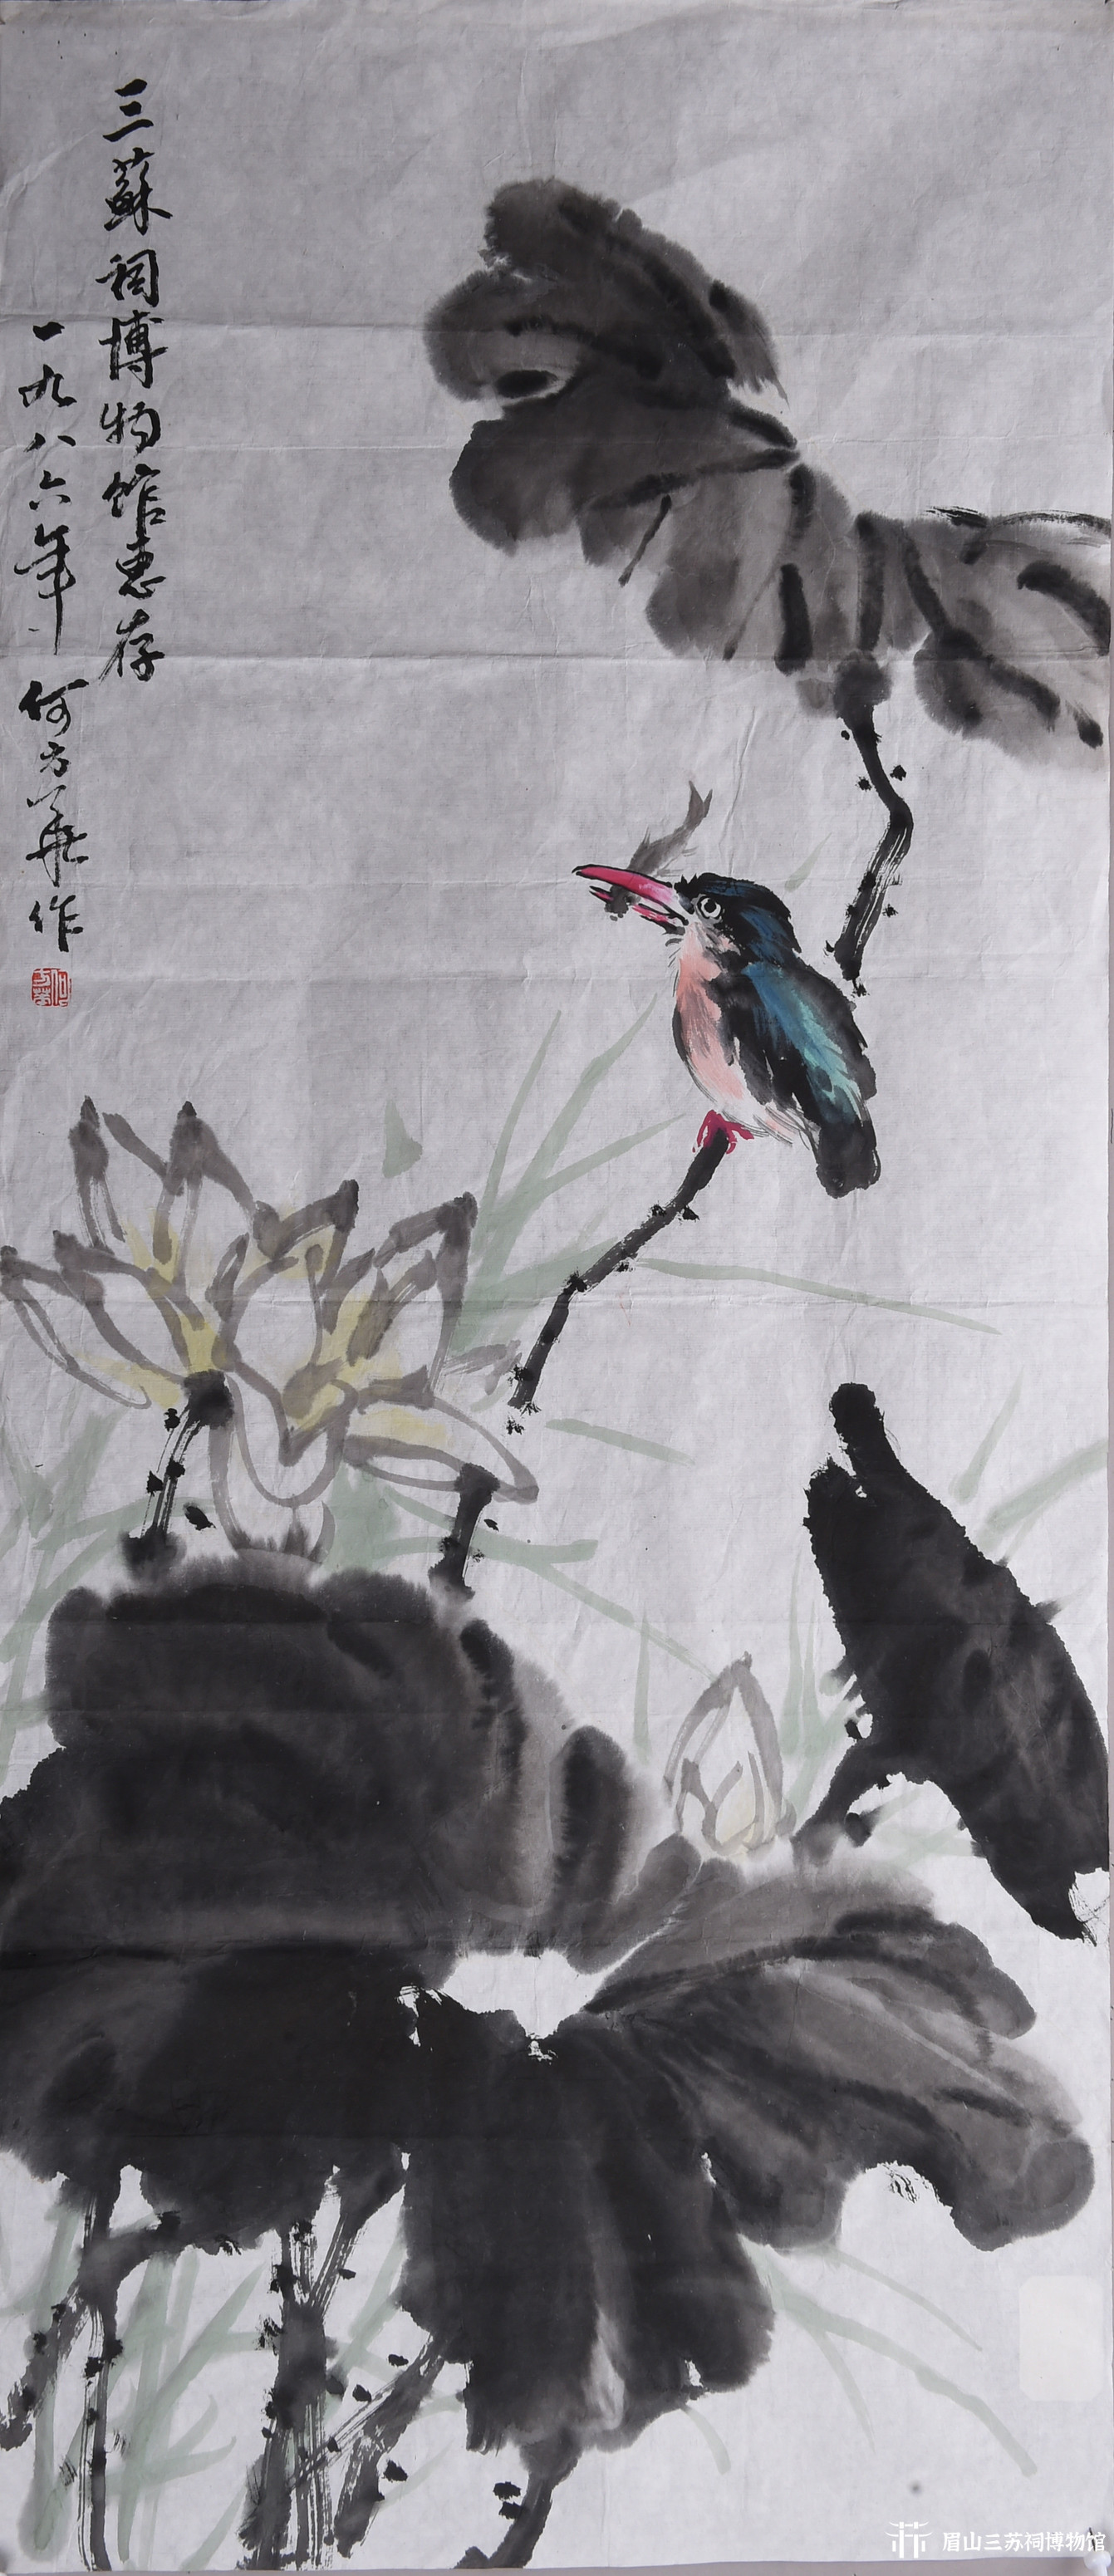 三蘇祠博物馆惠存
一九八六年 何方華作
眉山三苏祠博物馆